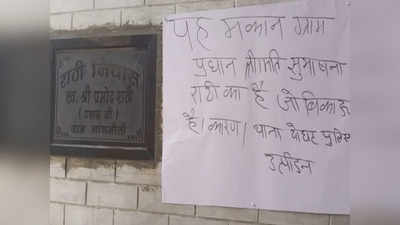 राठी निवास
स्व. श्री प्रमोद राठी
यह मकान ग्राम
प्रधान श्रीमति सुभाषना
राठी का है जो बिकाऊ
है। कारण। थाना
पुलिस
उत्पीडन